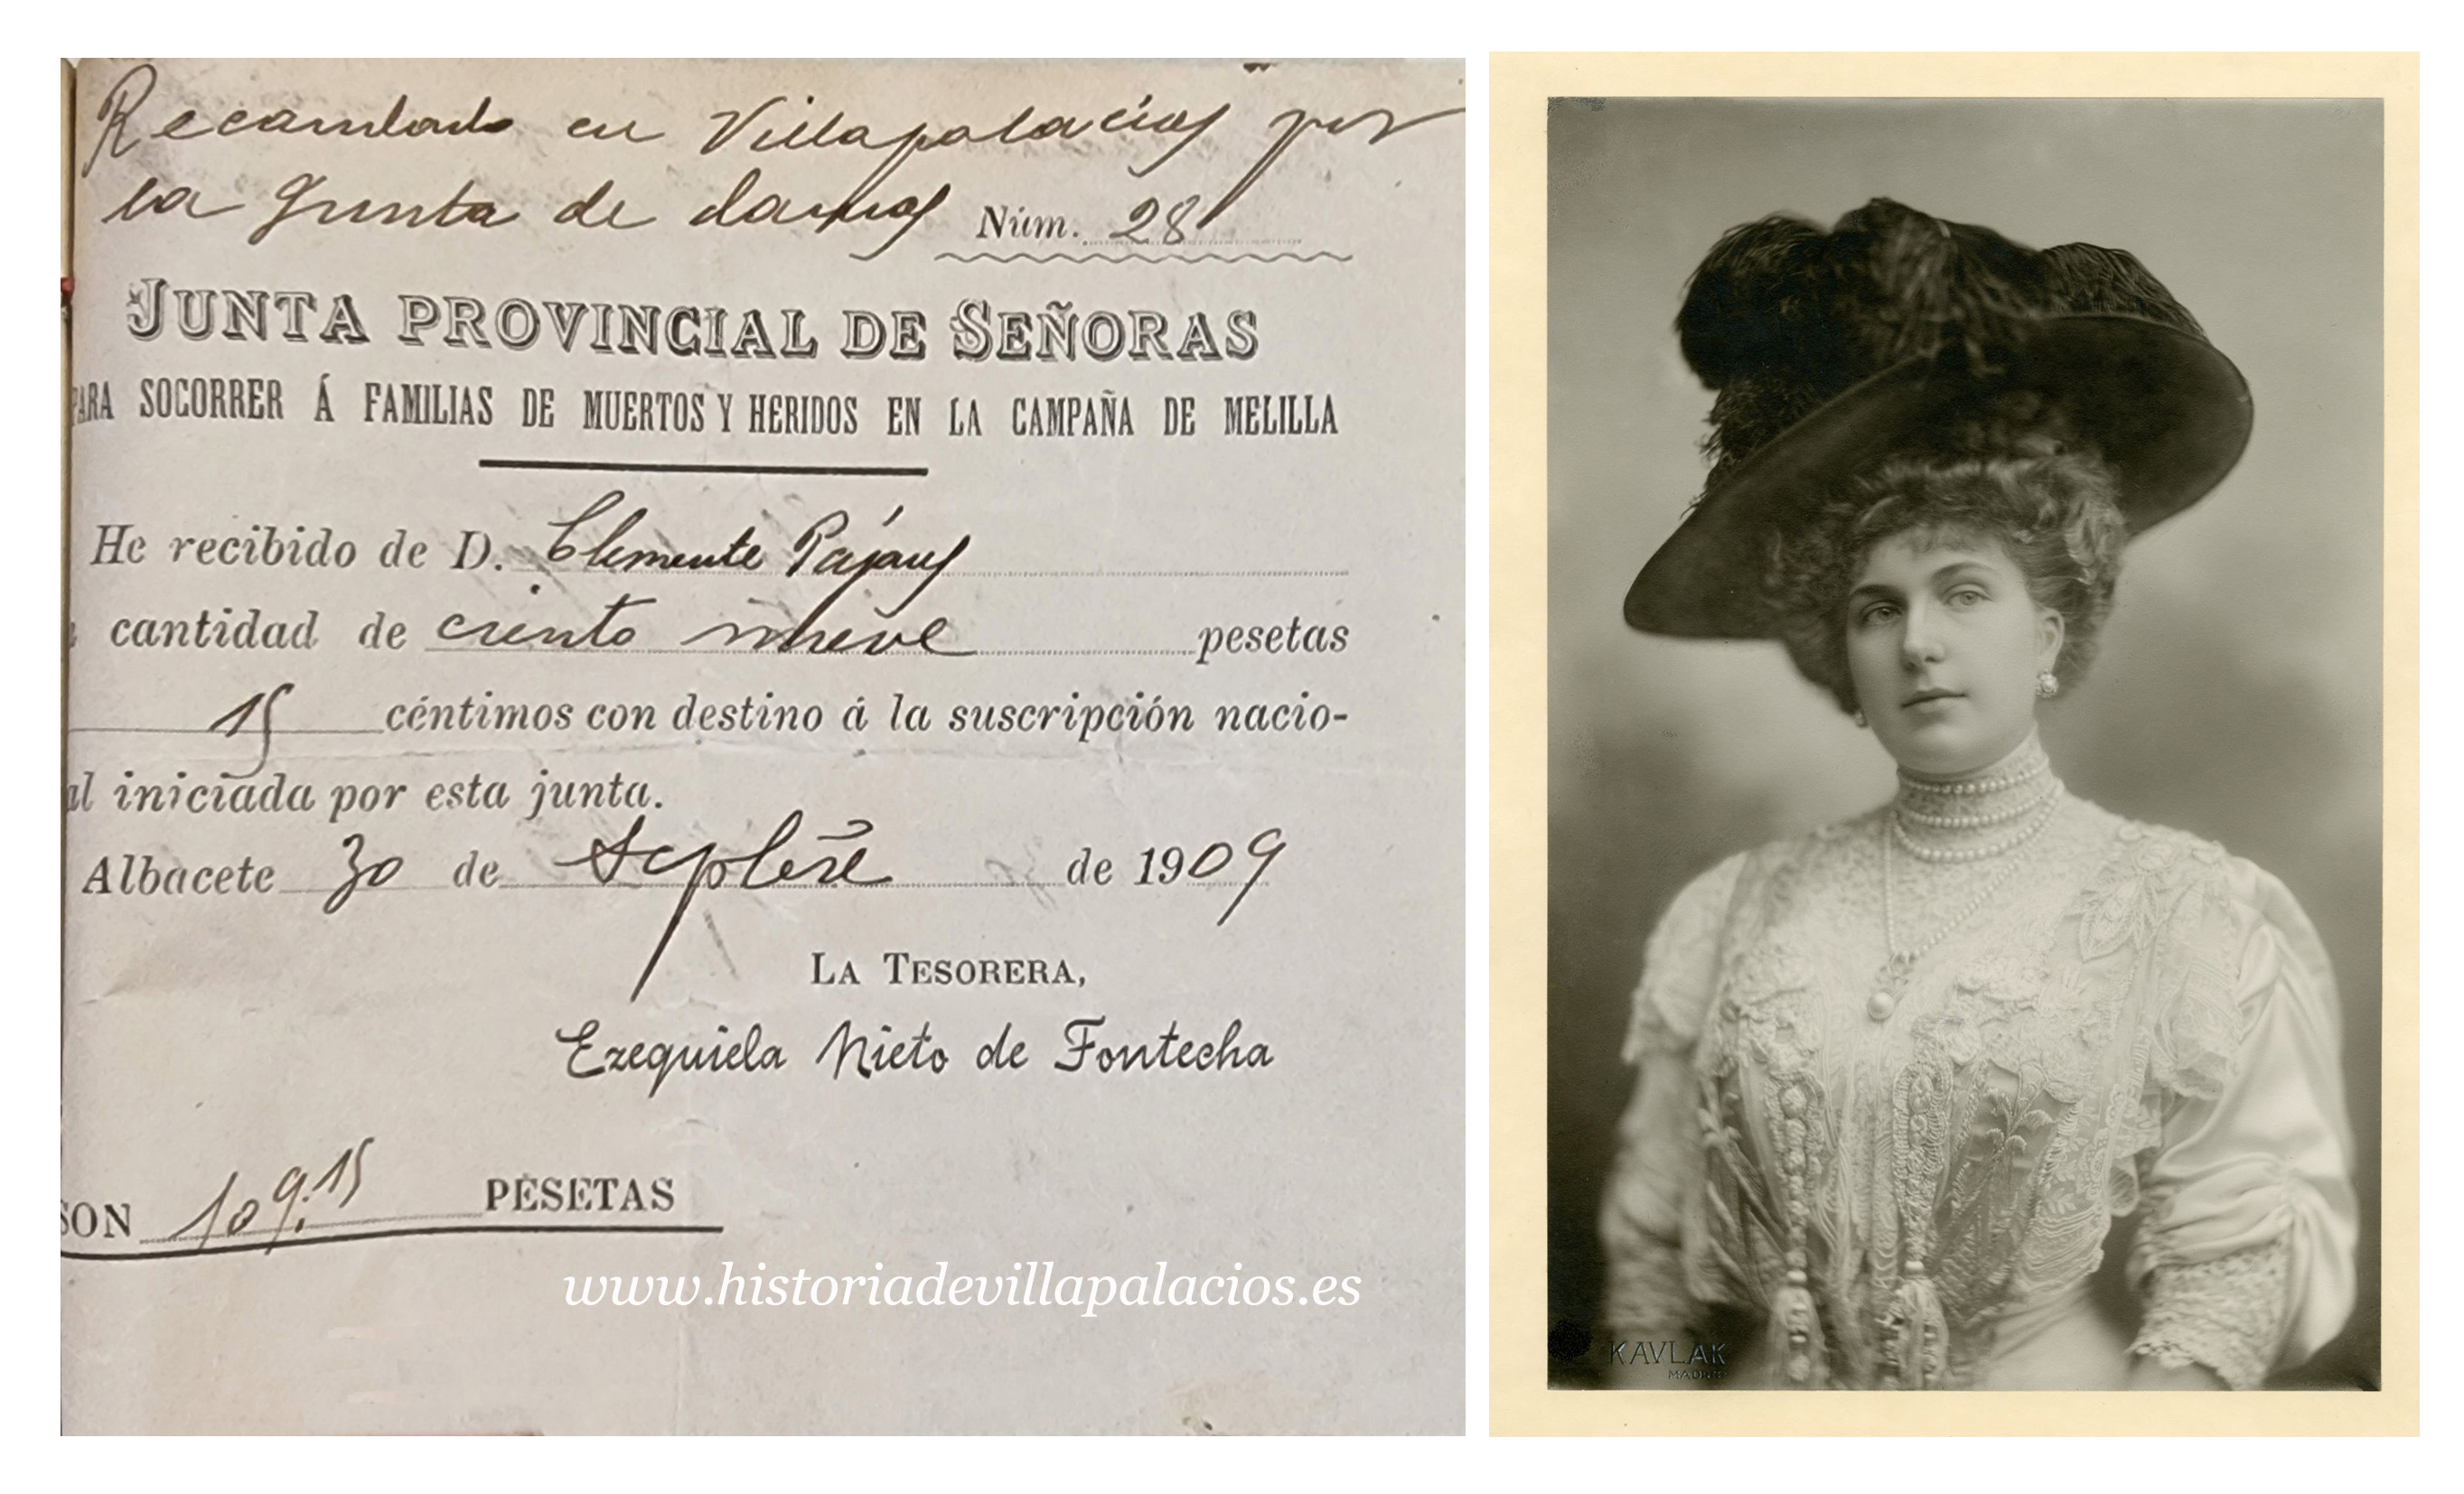 Recaudado en Villapalacios por
la Junta de damas Núm. 28
JUNTA PROVINCIAL DE SEÑORAS
PARA SOCORRER Á FAMILIAS DE MUERTOS Y HERIDOS EN LA CAMPAÑA DE MELILLA
He recibido de D. Clemente Pajares
cantidad de ciento nueve pesetas
15 céntimos con destino á la suscripción nacio-
al iniciada por esta junta.
Albacete 30 de Septbre de 1909
LA TESORERA,
Ezequiela Nieto de Fontecha
SON 109,15 PESETAS
www.historiadevillapalacios.es
KAVLAK
MADRID